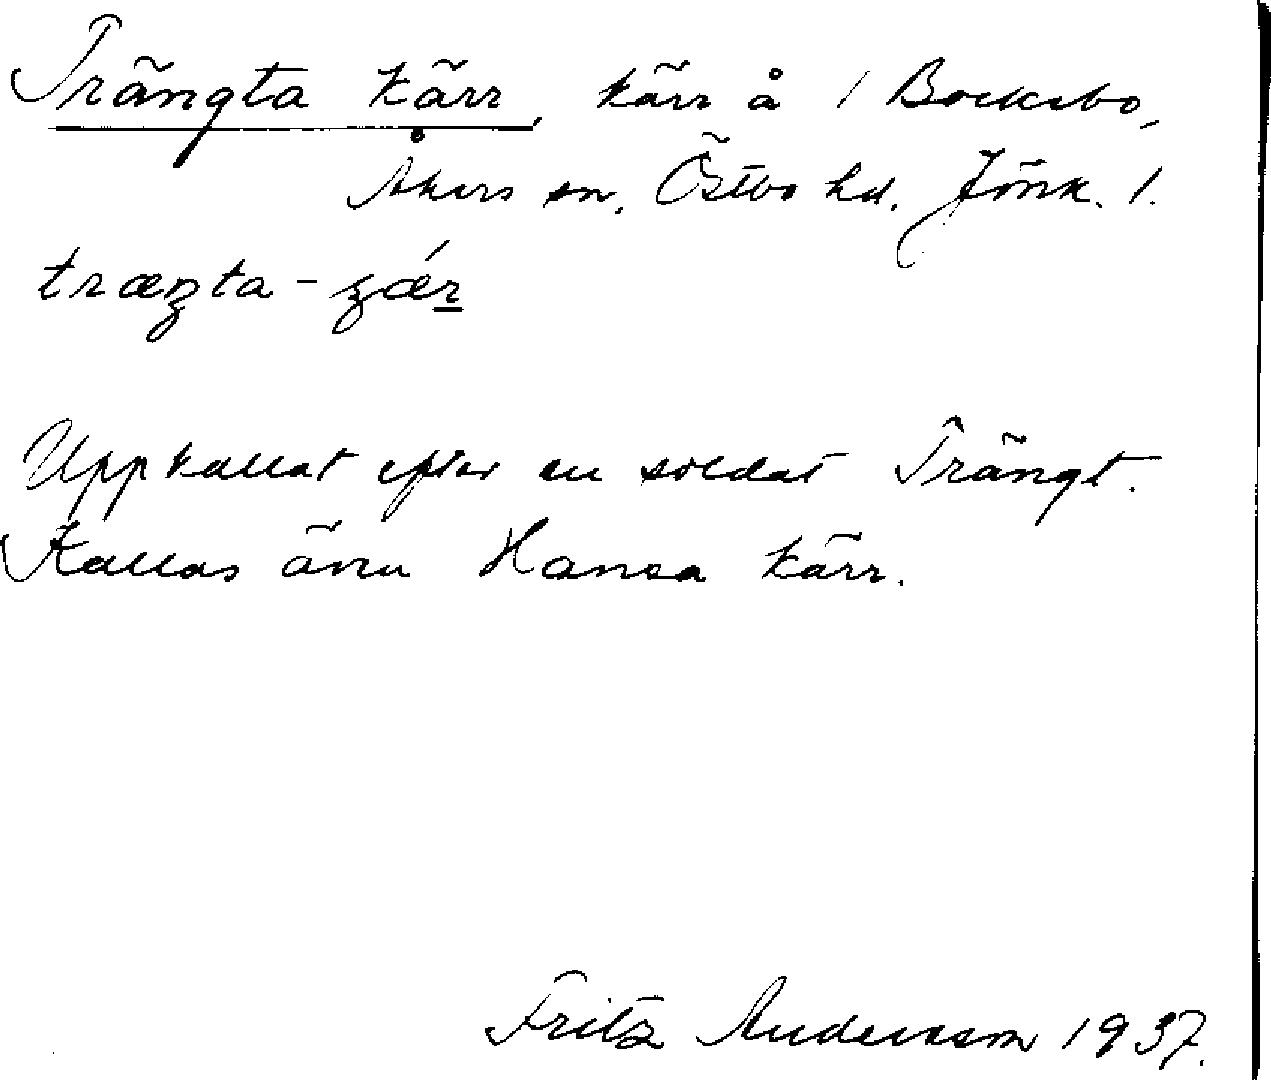 Trängta kärr, kärr å 1 Bocksbo,
Åkers sn, Östbo hd. Jönk. l.
træŋta-çǽr
Uppkallat efter en soldat Trängt.
Kallas ännu Hansa kärr.
Fritz Andersson 1937.